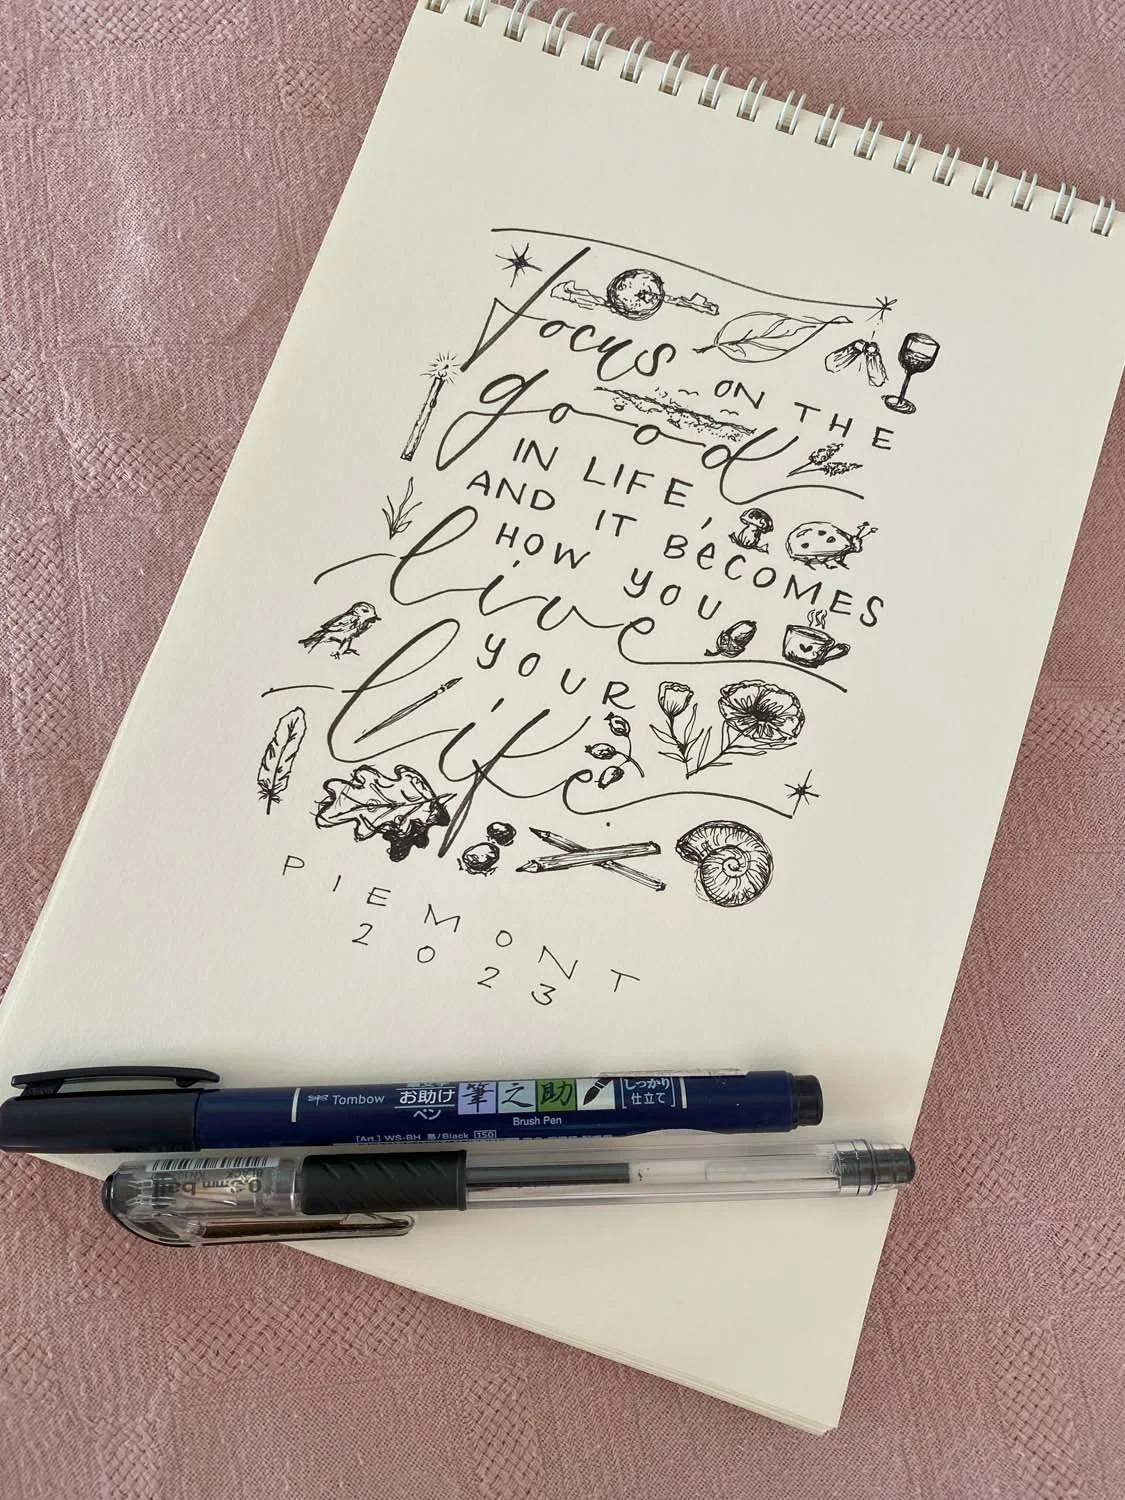 Focus ON THE
good
IN LIFE,
AND IT BECOMES
HOW YOU
live
YOUR
life
PIEMONT
2023
Tombow
お助け
ペン
筆之助
しっかり
仕立て
Brush Pen
[Art.] WS-BH 墨/Black 150
0.5mm ball
BLACK